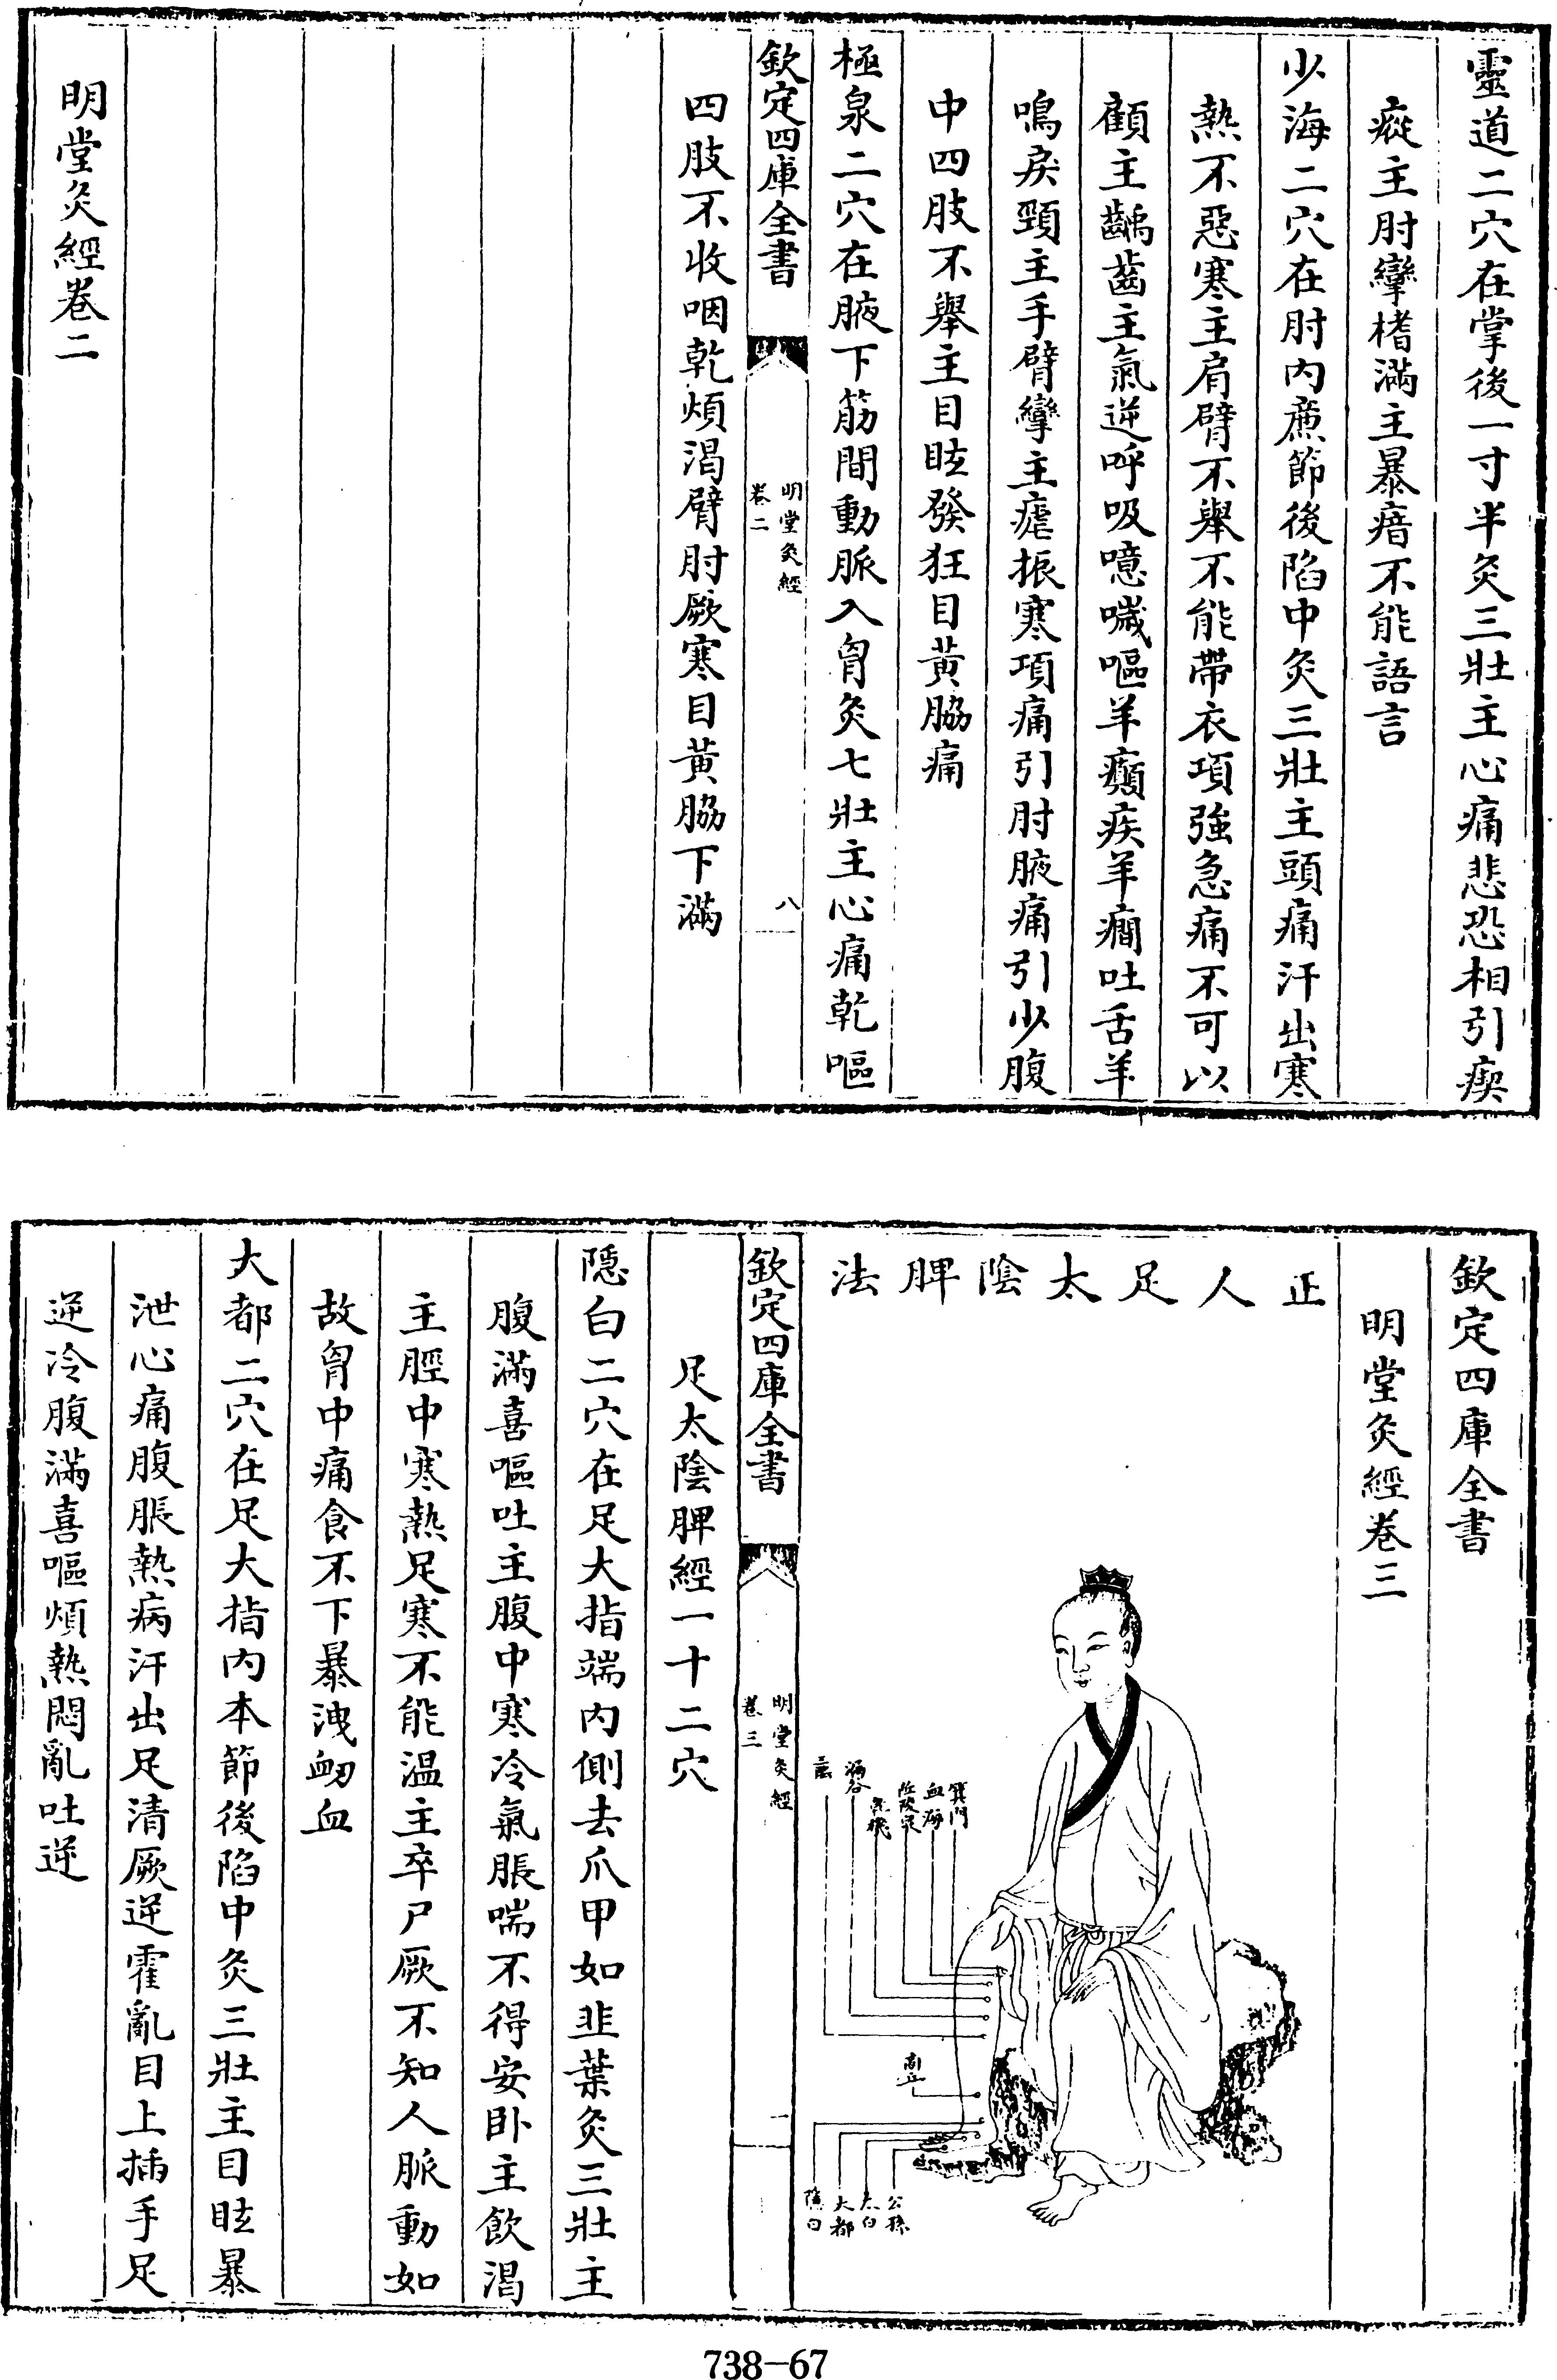 靈道二穴在掌後一寸半灸三壯主心痛悲恐相引瘈
瘲主肘攣楮滿主暴瘖不能語言
少海二穴在肘内亷節後陷中灸三壯主頭痛汗出寒
熱不惡寒主肩臂不舉不能帶衣項強急痛不可以
顧主齲齒主氣逆呼吸噫噦嘔羊癲疾羊癎吐舌羊
鳴戾頸主手臂攣主瘧振寒項痛引肘腋痛引少腹
中四肢不舉主目眩發狂目黄脇痛
極泉二穴在腋下筋間動脈入胷灸七壯主心痛乾嘔
欽定四庫全書
明堂灸經
卷二
八
四肢不收咽乾煩渴臂肘厥寒目黄脇下滿
明堂灸經卷二
欽定四庫全書
明堂灸經卷三
正人足太陰脾法
箕門
血海
陰陵泉
地機
漏谷
商丘
公孫
太白
大都
隱白
欽定四庫全書
明堂灸經
卷三
一
足太陰脾經一十二穴
隱白二穴在足大指端内側去爪甲如韭葉灸三壯主
腹滿喜嘔吐主腹中寒冷氣脹喘不得安卧主飲渴
主脛中寒熱足寒不能溫主卒尸厥不知人脈動如
故胷中痛食不下暴洩衂血
大都二穴在足大指内本節後陷中灸三壯主目眩暴
泄心痛腹脹熱病汗出足清厥逆霍亂目上插手足
逆冷腹滿喜嘔煩熱悶亂吐逆
738-67